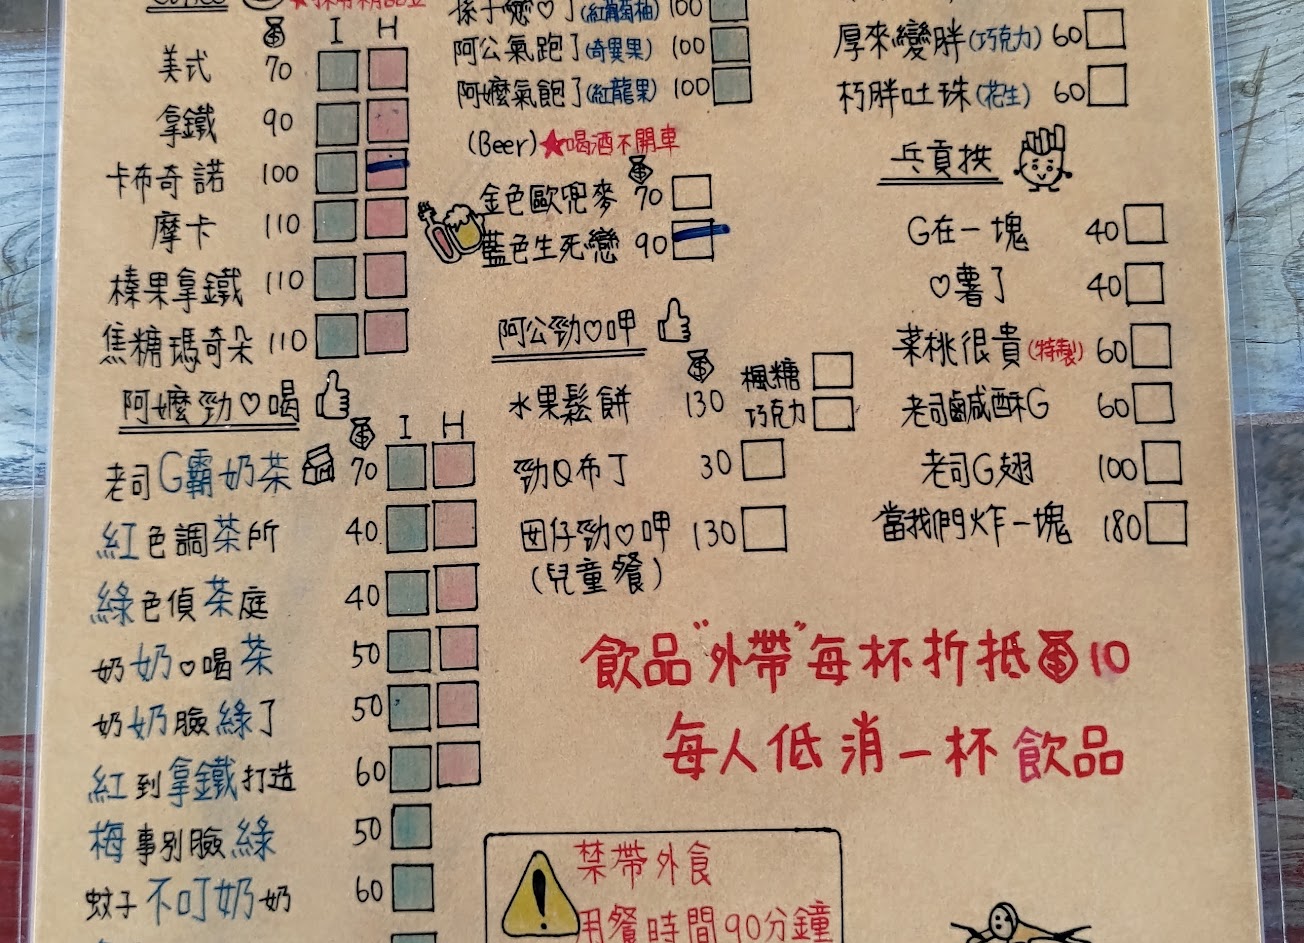 I H
美式 70
拿鐵 90
卡布奇諾 100
摩卡 110
榛果拿鐵 110
焦糖瑪奇朵 110
阿嬤勁♡喝
I H
老司G霸奶茶 70
紅色調茶所 40
綠色偵茶庭 40
奶奶♡喝茶 50
奶奶臉綠了 50
紅到拿鐵打造 60
梅事別臉綠 50
蚊子不叮奶奶 60
孫子戀♡了(紅葡萄柚) 100
阿公氣跑了(奇異果) 100
阿嬤氣飽了(紅龍果) 100
(Beer)★喝酒不開車
金色歐兜麥 70
藍色生死戀 90
阿公勁♡呷
水果鬆餅 130 楓糖
巧克力
勁Q布丁 30
囝仔勁♡呷 130
(兒童餐)
厚來變胖(巧克力) 60
朽胖吐珠(花生) 60
乓貢拱
G在一塊 40
♡薯了 40
菜桃很貴(特製) 60
老司鹹酥G 60
老司G翅 100
當我們炸一塊 180
飲品"外帶"每杯折抵 10
每人低消一杯飲品
禁帶外食
用餐時間90分鐘